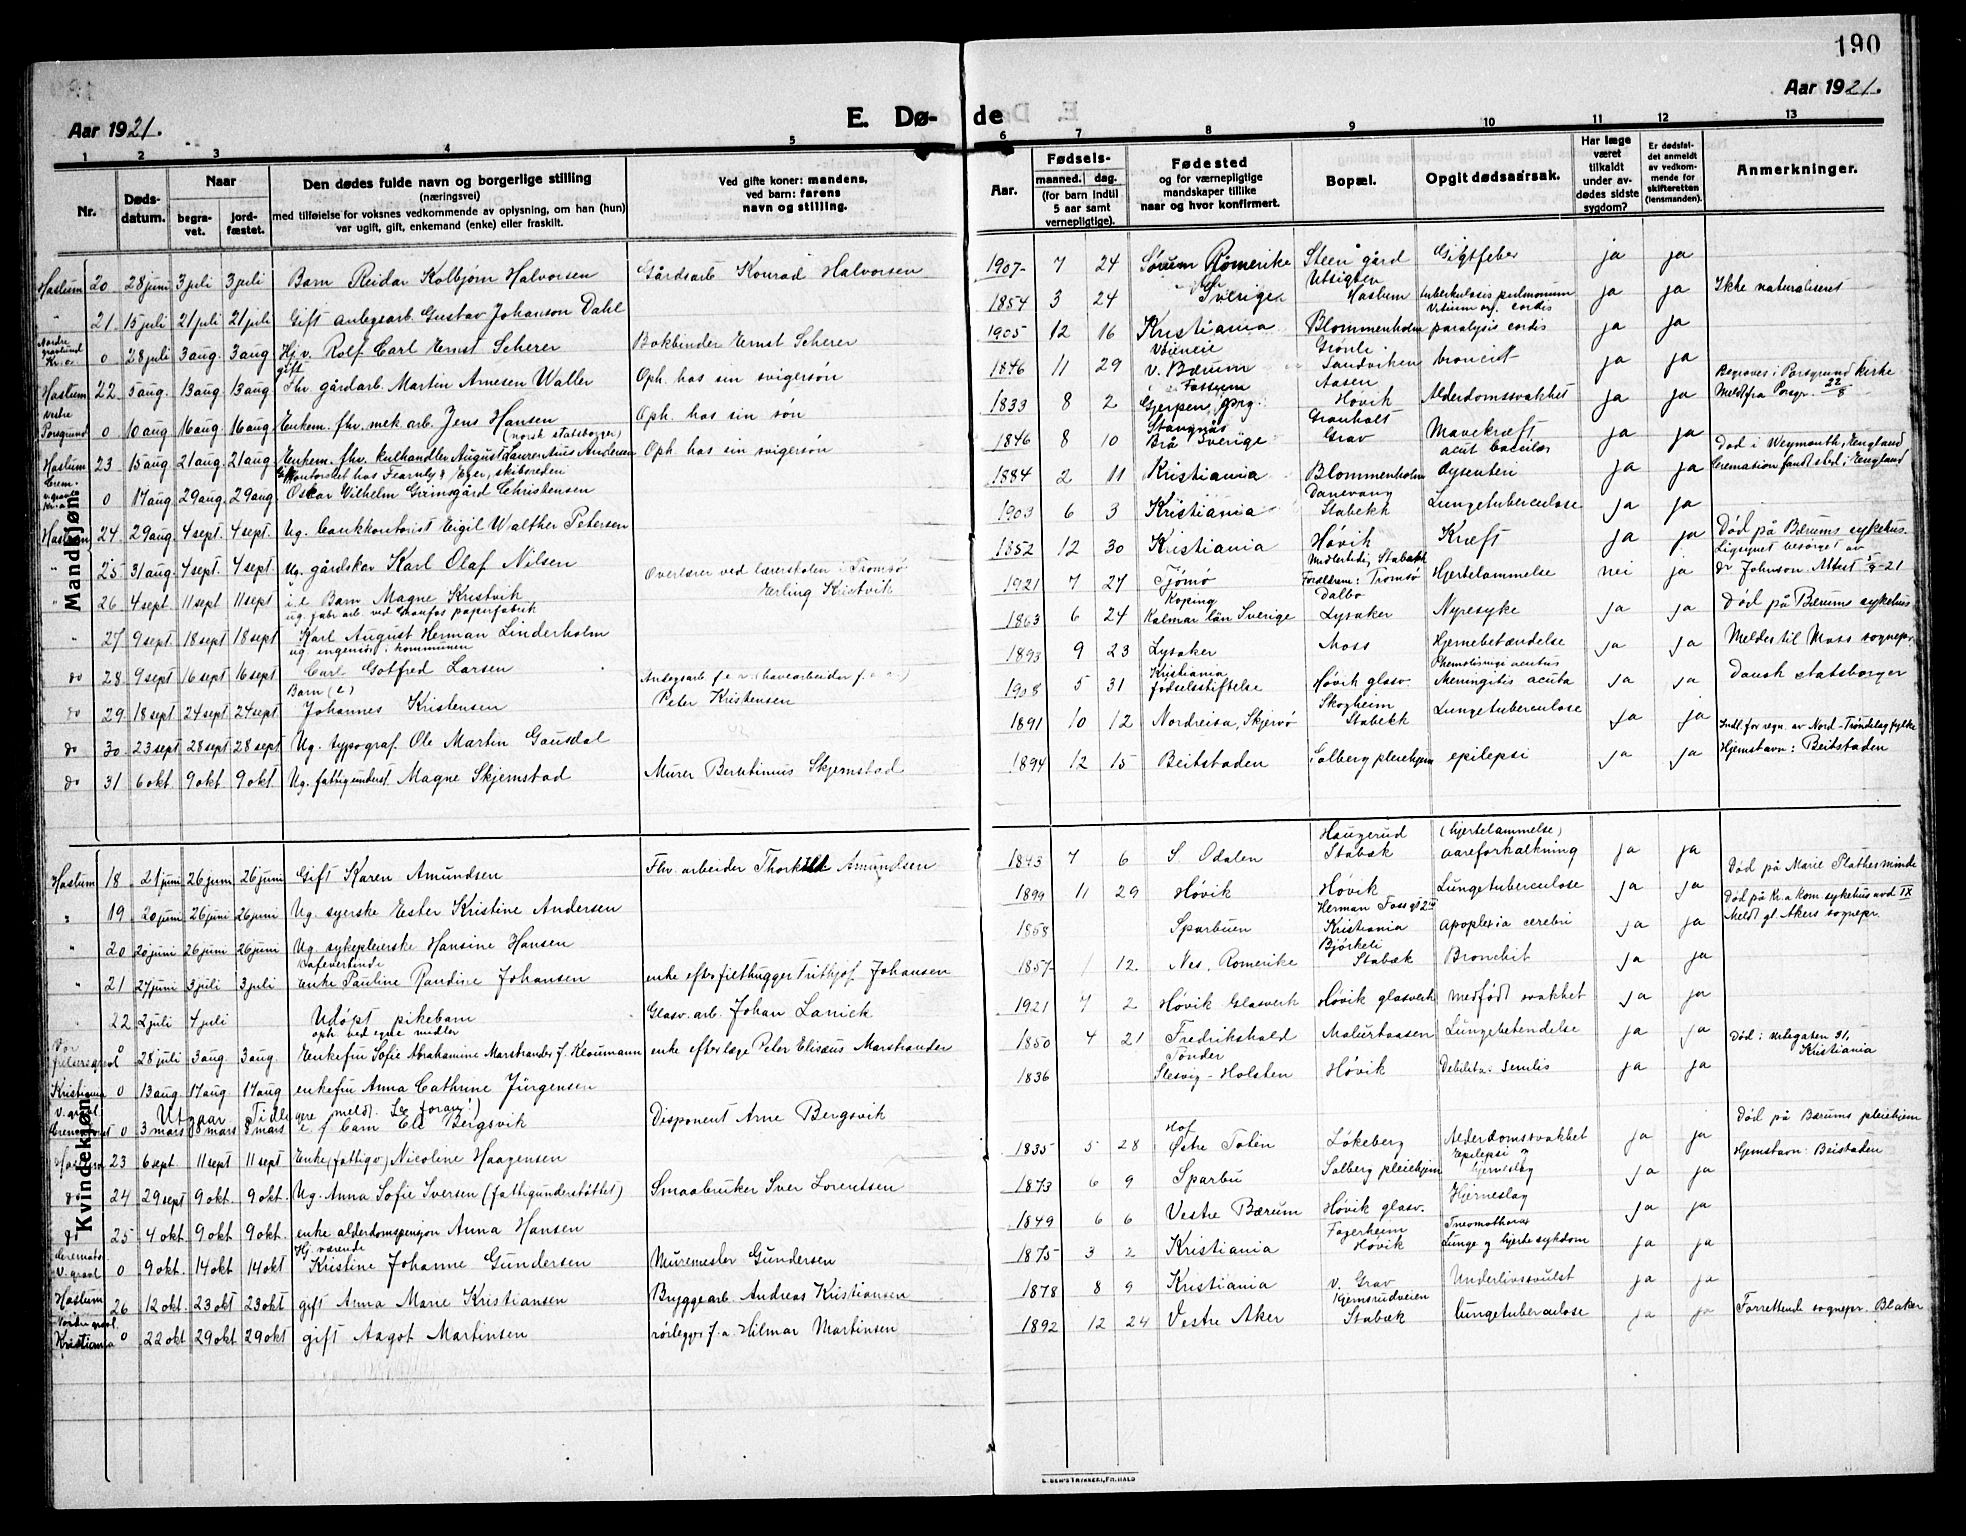 190
Aar 1921.
E. Dø-
de
Aar 1921.
1 2 3 4 5 6 7 8 9 10 11 12 13
Nr.
Døds-
datum.
Naar
begra-
vet.
jord-
fæstet.
Den dødes fulde navn og borgerlige stilling
(næringsvei)
med tilføielse for voksnes vedkommende av oplysning, om han (hun)
var ugift, gift, enkemand (enke) eller fraskilt.
Ved gifte koner: mandens,
ved barn: farens
navn og stilling.
Aar.
Fødsels-
maaned. dag.
(for barn indtil
5 aar samt
vernepligtige).
Fødested
og for værnepligtige
mandskaper tillike
naar og hvor konfirmert.
Bopæl.
Opgit dødsaarsak.
Har læge
været
tilkaldt
under av-
dødes sidste
sygdom?
Er dødsfal-
det anmeldt
av vedkom-
mende for
skifteretten
(lensmanden).
Anmerkninger.
Mandkjøn.
Haslum 20 28 juni 3 juli 3 juli Barn Reidar Kolbjørn Halvorsen Gårdsarb Konrad Halvorsen 1907 7 24 Sørum Romerike Steen gård Gigtfeber ja ja
" 21 15 juli 21 juli 21 juli Gift anlegsarb. Gustav Johanson Dahl 1854 3 24 Sverige Utsigten Haslum tuberkulosis pulmonum Vitium org. cordis ja ja Ikke naturaliseret
Nordre gravlund Kr.a 0 28 juli 3 aug. 3 aug Hjv. Rolf Carl Ernst Scherer Bokbinder Ernst Scherer 1905 12 16 Kristiania Blommenholm paralysis cordis ja ja
Haslum 22 5 aug. 13 aug 13 aug gift Fhv gårdarb. Martin Arnesen Waller Oph. hos sin svigersøn 1846 11 29 V. Bærum Grønli Sandviken broncit ja ja
Vestre Porsgrund 0 10 aug 16 aug. 16 aug. Enkem. fhv. mek. arb. Jens Hansen Oph. hos sin søn 1833 8 2 Gjerpen, prg. Aasen Høvik Alderdomssvakhet ja ja Begraves i Porsgrund kirke Meldt fra Porsgr. 22/8
Haslum 23 15 aug 21 aug. 21 aug (norsk statsborger) Enkem. fhv. kulhandler August Laurentius Andersen Oph. hos sin svigersøn 1846 8 10 Stangnäs Brå Sverige Granholt Grav Mavekræft ja ja
Crem. v. gravl. Kr.a 0 17 aug. 29 aug. 29 aug. Gift kontorchef hos Fearnly & Eger, skibsrederi Oskar Wilhelm Grimsgård Christensen 1884 2 11 Kristiania Blommenholm acut bacilær dysenteri ja ja Død i Weymouth, England Cremation fandt sted i England
Haslum 24 29 aug. 4 sept. 4 sept. Ug. bankkontorist Eigil Walther Petersen 1903 6 3 Kristiania Danevang Stabekk Lungetuberculose ja ja
" 25 31 aug. 4 sept. 4 sept. Ug. gårdskar Karl Olaf Nilsen 1852 12 30 Kristiania Høvik Kræft ja ja Død på Bærums sykehus.
" 26 4 sept. 11 sept 11 sept i.e. Barn Magne Krestvik Overlærer ved lærerskolen i Tromsø Erling Kristvik 1921 7 27 Tjømø Midlertidig Stabækk Foreldrene: Tromsø Hjertelammelse nei ja Ligsynet besørget av dr Johnson Attest 5/9-21
" 27 9 sept. 18 sept 18 sept ug. fabr arb ved Granfos papirfabrik Karl August Herman Linderholm 1863 6 24 Koping Kalmar län Sverige Dalbo Lysaker Nyresyke ja ja Død på Bærums sykehus
do 28 9 sept. 16 sept. 16 sept. ug. ingeniør i kommunen Carl Gotfred Larsen 1893 9 23 Lysaker Moss Hjernebetændelse ja ja Meldes til Moss sognepr.
do 29 18 sept 24 sept 24 sept Barn (e) Johannes Kristensen Peter Kristensen 1908 5 31 Kristiania fødselsstiftelse Høvik glasv. Meningitis acuta ja ja Dansk statsborger
do 30 23 sept 28 sept 28 sept Ug. typograf. Ole Martin Gausdal 1891 10 12 Nordreisa, Skjervø Skogheim Stabekk Lungetuberculose ja ja
do 31 6 okt 9 okt 9 okt Ug. fattigunderst Magne Skjemstad Murer Berntinius Skjemstad 1894 12 15 Beitstaden Solberg pleiehjem epilepsi ja ja Indl. for regn. av Nord-Trøndelag fylke Hjemstavn: Beitstaden
Kvindekjøn.
Haslum 18 21 juni 26 juni 26 juni Gift Karen Amundsen Fhv. arbeider Thorkild Amundsen 1843 7 6 S. Odalen Haugerud Stabæk (hjertelammelse) aareforkalkning ja ja
" 19 20 juni 26 juni 26 juni Ug. syerske Ester Kristine Andersen 1899 11 29 Høvik Høvik Lungetuberculose ja ja Død på Marie Plathes minde
" 20 20 juni 26 juni 26 juni Ug. sykepleierske Hansine Hansen 1858 Sparbuen Herman Foss gt 2 Kristiania apoplexia cerebri ja ja Død på Kr.a kom sykehus avd IX Meldt gl. Akers sognepr.
" 21 27 juni 3 juli 3 juli Kafevertinde Enke Pauline Randine Johansen enke efter filthugger Frithjof Johansen 1857 1 12. Nes, Romerike Bjørkeli Stabæk Bronchit ja ja
" 22 2 juli 4 juli Udøpt pikebarn Glasv. arb. Johan Lanick 1921 7 2 Høvik Glasverk Høvik glasverk medfødt svakhet ja ja
Vor frelsers gravl 0 28 juli 3 aug. 3 aug. oph. ved egne midler Enkefru Sofie Abrahamine Marstrander f. Kloumann enke efter læge Peter Elisæus Marstrander 1850 4 21 Fredrikshald Malurtaasen Lungebetendelse ja ja
Kristiania v. gravl. 0 13 aug. 17 aug 17 aug enkefru Anna Cathrine Jürgensen 1836 Tønder Slesvig-Holsten Høvik Debilitas senilis ja ja Død i Kristiania
Utgaar Tidligere meldt. Se foran!)
0 3 mars 8 mars 8 mars e. f barn Else Bergsvik Disponent Arne Bergsvik
Haslum 23 6 sept. 11 sept 11 sept Enke (fattigv) Nicoline Haagensen 1835 5 28 Hof Østre Toten Løkeberg Alderdomssvakhet ja ja Død på Bærums pleiehjem
do 24 29 sept 9 okt. 9 okt. Ug. Anna Sofie Iversen (fattigunderstøttet) Smaabruker Sver Lorentsen 1873 6 9 Sparbu Solberg pleiehjem Epilepsi og hjerneslag ja ja Hjemstavn: Beistaden
do 25 4 okt. 9 okt. 9 okt. enke alderdomspensjon Anna Hansen 1849 6 6 Vestre Bærum Høvik glasv. Hjerneslag ja ja
Cremat. v. gravl 0 9 okt. 14 okt 14 okt Hj. værende Kristine Johanne Gundersen Murmester Gundersen 1875 3 2 Kristiania Fagerheim Høvik Pneomothorax Lunge og hjerte sykdom ja ja
Haslum 26 12 okt. 23 okt 23 okt gift Anna Marie Kristiansen Bryggearb. Andreas Kristiansen 1878 8 9 Kristiania V. Grav Underlivssvulst ja ja
Nordre gravl. Kristiania 0 22 okt 29 okt 29 okt gift Aagot Martinsen rørlegger f.a Hilmar Martinsen 1892 12 24 Vestre Aker Gjemsrudveien Stabæk lungetuberculose ja ja Forrettende sognepr. Blaker